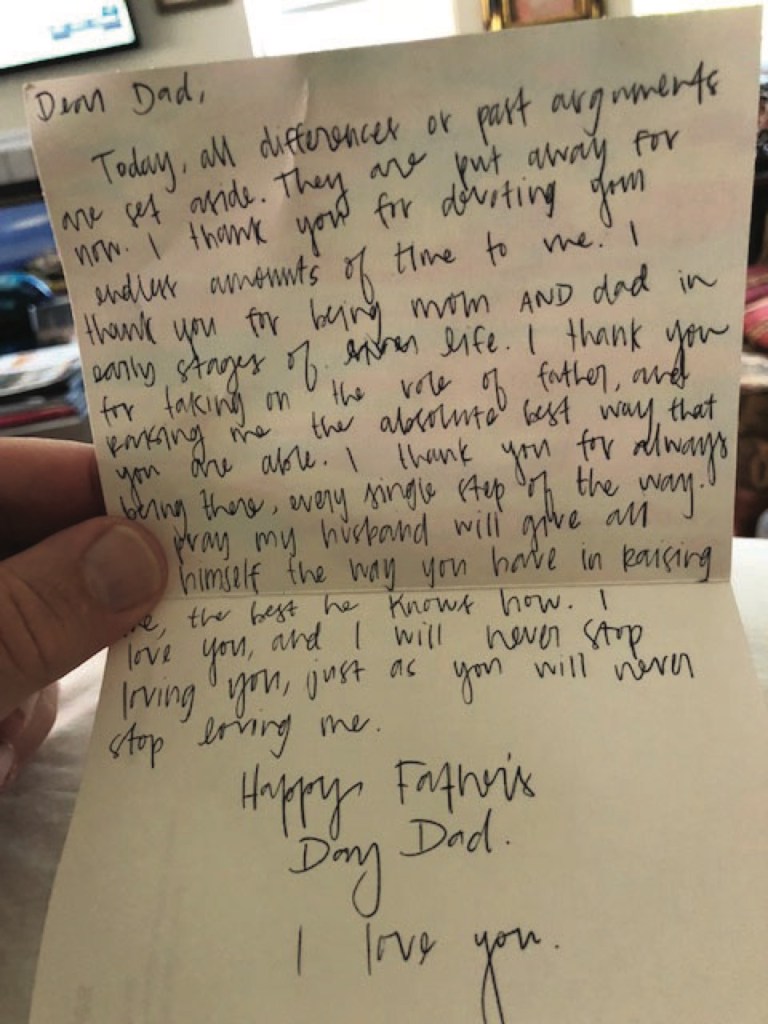 Dear Dad,
Today, all differences or past arguments
are set aside. They are put away for
now. I thank you for devoting your
endless amounts of time to me. I
thank you for being mom AND dad in
early stages of life. I thank you
for taking on the role of father, and
raising me the absolute best way that
you are able. I thank you for always
being there, every single step of the way.
pray my husband will give all
himself the way you have in raising
me, the best he knows how. I
love you, and I will never stop
loving you, just as you will never
stop loving me.
Happy Father's
Day Dad.
I love you.